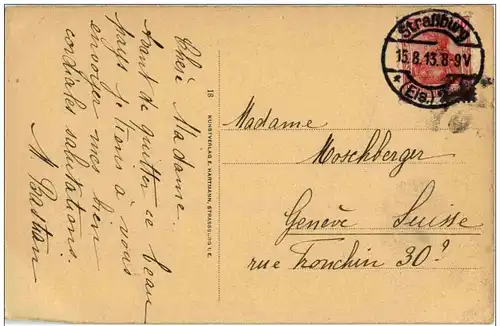 Chère Madame.
Avant de quitter ce beau
pays je tiens à vous
envoyer mes bien
cordiales salutations.
N. Bastian
18
KUNSTVERLAG E. HARTMANN, STRASSBURG I. E.
Straßburg
15.8.13.8-9V
* (Els.) 2
Madame
Moschberger
Genève Suisse
rue Tronchin 30?